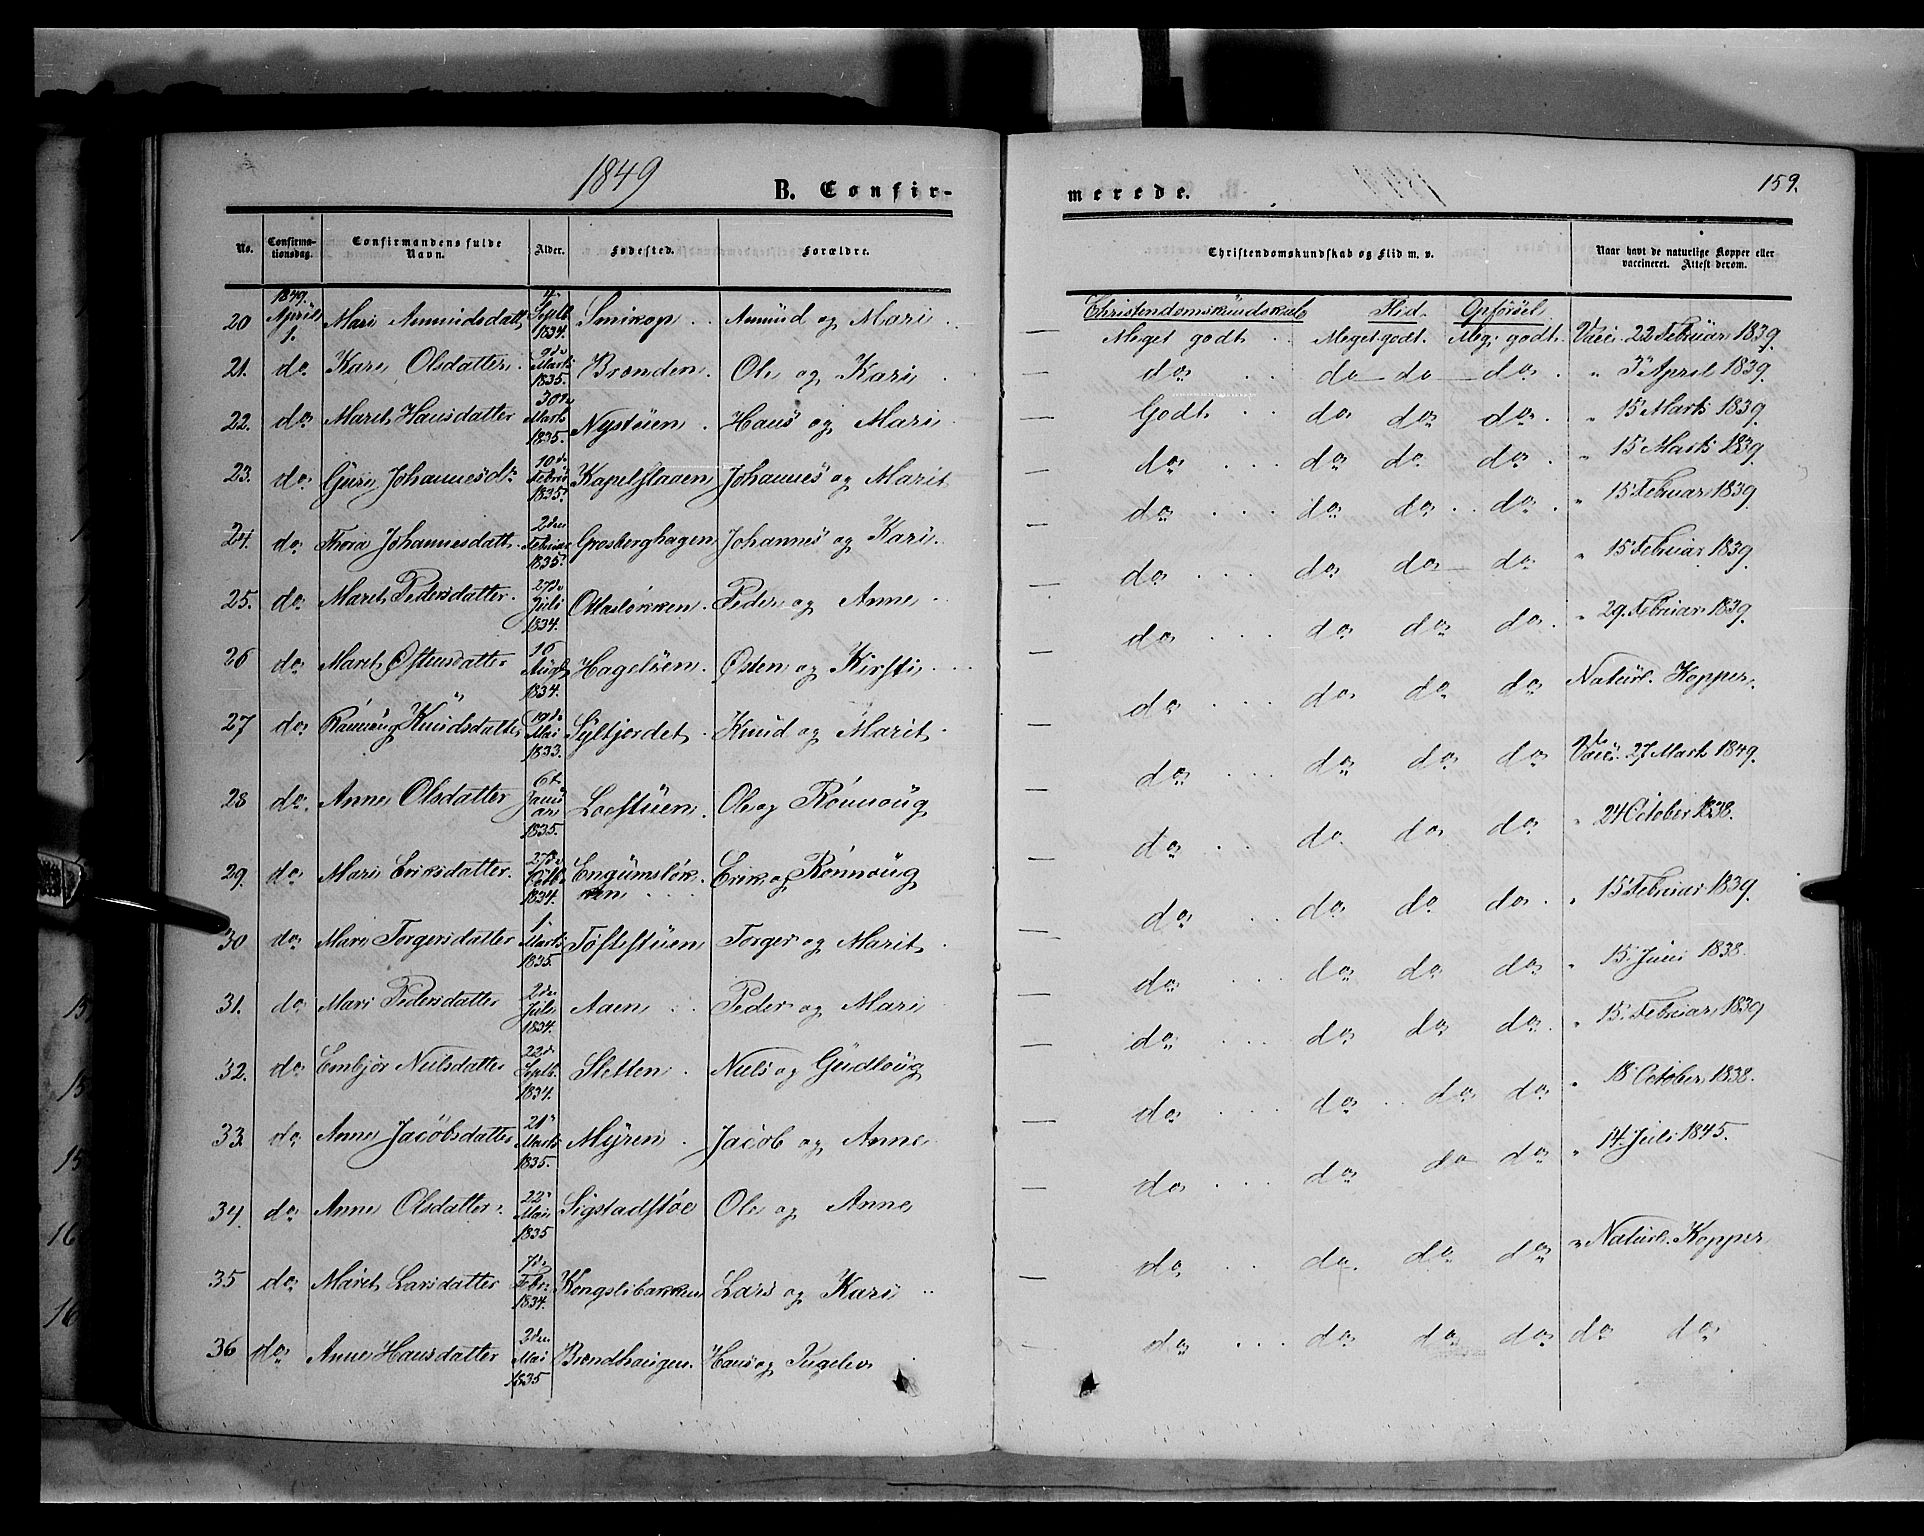 1849
B. Confir-
merede.
159.
No. Confirma-tionsdag. Confirmandens fulde Navn. Alder. Fødested. Forældre. Christendomskundskab og Flid m. v. Naar havt de naturlige Kopper eller vaccineret. Attest derom.
Christendomskundskab Flid. Opførsel
20 1849. April 1. Mari Amundsdatt 4 Septb 1834. Smikop Amund og Mari Meget godt Meget godt. Meg. godt Vacc. 22 Februar 1839.
21. do Kari Olsdatter. 9de Marts 1835. Brenden. Ole og Kari do do do do " 3 April 1839.
22. do Marit Hansdatter 30te Marts 1835. Nystuen. Hans og Mari Godt do do do " 15 Marts 1839.
23. do Guri Johannesd. 10de Februar 1835. Kapelflaaen Johannes og Marit do do do do " 15 Marts 1839.
24. do Thora Johannesdatt. 2den Februar 1835. Grosberghagen Johannes og Kari. do do do do " 15 Februar 1839.
25. do Marit Pedersdatter. 27de Juli 1834. Ottaløkken. Peder og Anne do do do do " 15 Februar 1839.
26 do Marit Østensdatter 16 Augt 1834. Hageløen. Østen og Kirsti do do do do " 29. Februar 1839.
27 do Rønnaug Knudsdatter 19de Mai 1833. Syltjordet. Knud og Marit do do do do Naturl. Kopper.
28 do Anne Olsdatter 6te Januar 1835. Loeftuen. Ole og Rønnoug do do do do Vacc. 27 Marts 1849.
29. do Mari Eriksdatter. 27de 1834. Engumsløkken Erik og Rønnoug do do do do " 24 October 1838.
30 do Mari Torgersdatter 1. Marts 1835. Tofteftuen Torger og Marit do do do do " 15 Februar 1839.
31. do Mari Pedersdatter 2den Juli 1834. Aaen Peder og Mari do do do do " 15 Juni 1838.
32. do Embjør Nielsdatter 22de Septb. 1834. Sletten Niels og Gudloug do do do do " 15. Februar 1839
33. do Anne Jacobsdatter 21 Marts 1835. Myren. Jacob og Anne do do do do " 18 October 1838.
34. do Anne Olsdatter. 22 Mai 1835 Sigstadstøe Ole og Anne do do do do " 14. Juli 1845.
35 do Marit Larsdatter 7de Febr. 1834. Kongslibakken Lars og Kari do do do do " Naturl. Kopper
36 do Anne Hansdatter 2den Mai 1835 Brendhaugen. Hans og Ingelev do do do do do do